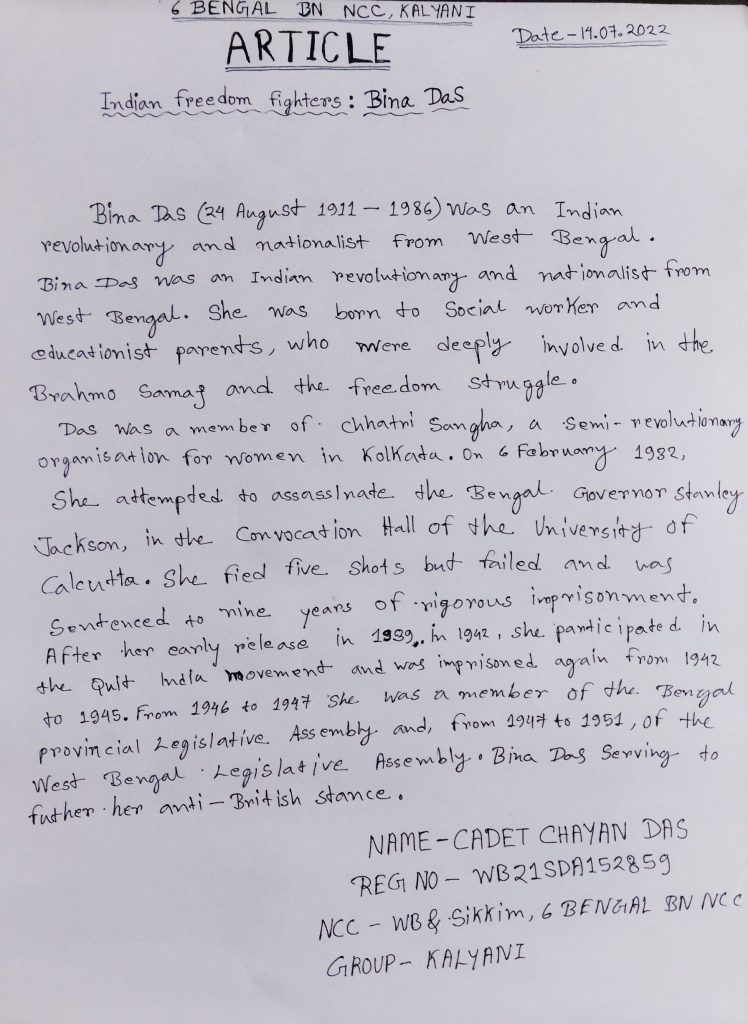 6 BENGAL BN NCC, KALYANI
ARTICLE
Date - 14.07.2022
Indian freedom fighters : Bina Das
Bina Das (24 August 1911 - 1986) was an Indian
revolutionary and nationalist from West Bengal.
Bina Das was an Indian revolutionary and nationalist from
West Bengal. She was born to Social worker and
educationist parents, who were deeply involved in the
Brahmo Samaj and the freedom struggle.
Das was a member of chhatri Sangha, a semi-revolutionary
organisation for women in Kolkata. On 6 February 1932,
She attempted to assassinate the Bengal Governor Stanley
Jackson, in the Convocation Hall of the University of
Calcutta. She fied five shots but failed and was
Sentenced to nine years of rigorous imprisonment.
After her early release in 1939. in 1942, she participated in
the Quit India movement and was imprisoned again from 1942
to 1945. From 1946 to 1947 she was a member of the Bengal
provincial Legislative Assembly and, from 1947 to 1951, of the
West Bengal Legislative Assembly. Bina Das Serving to
futher her anti-British stance.
NAME - CADET CHAYAN DAS
REG NO - WB21SDA152859
NCC - WB & Sikkim, 6 BENGAL BN NCC
GROUP - KALYANI